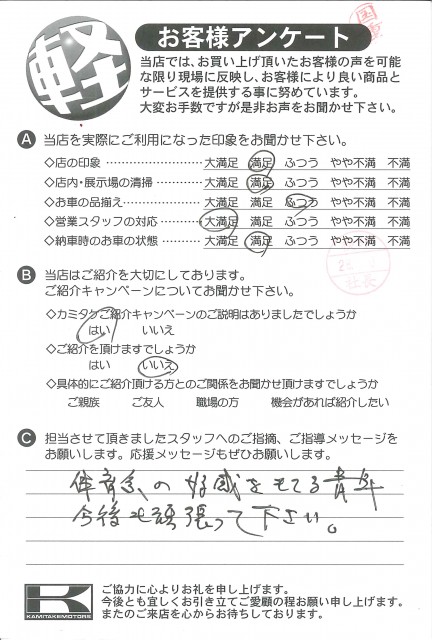 軽
お客様アンケート
当店では、お買い上げ頂いたお客様の声を可能
な限り現場に反映し、お客様により良い商品と
サービスを提供する事に努めています。
大変お手数ですが是非お声をお聞かせ下さい。
A 当店を実際にご利用になった印象をお聞かせ下さい。
◇店の印象 …………………… 大満足 満足 ふつう やや不満 不満
◇店内・展示場の清掃………… 大満足 満足 ふつう やや不満 不満
◇お車の品揃え………………… 大満足 満足 ふつう やや不満 不満
◇営業スタッフの対応………… 大満足 満足 ふつう やや不満 不満
◇納車時のお車の状態………… 大満足 満足 ふつう やや不満 不満
B 当店はご紹介を大切にしております。
ご紹介キャンペーンについてお聞かせ下さい。
◇カミタケご紹介キャンペーンのご説明はありましたでしょうか
はい いいえ
◇ご紹介を頂けますでしょうか
はい いいえ
◇具体的にご紹介頂ける方とのご関係をお聞かせ頂けますでしょうか
ご親族 ご友人 職場の方 機会があれば紹介したい
C 担当させて頂きましたスタッフへのご指摘、ご指導メッセージを
お願いします。応援メッセージもぜひお願いします。
体育系の好感をもてる青年
今後も頑張って下さい。
KAMITAKEMOTORS
ご協力に心よりお礼を申し上げます。
今後とも宜しくお引き立てご愛顧の程お願い申し上げます。
またのご来店を心からお待ちしております。